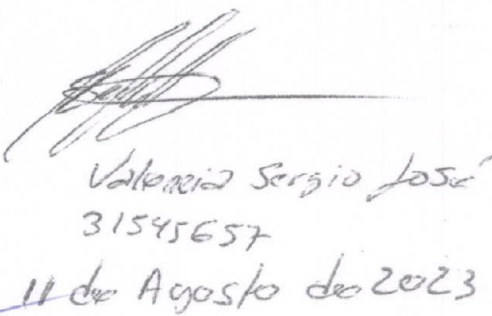 Valencia Sergio José
31545657
11 de Agosto de 2023